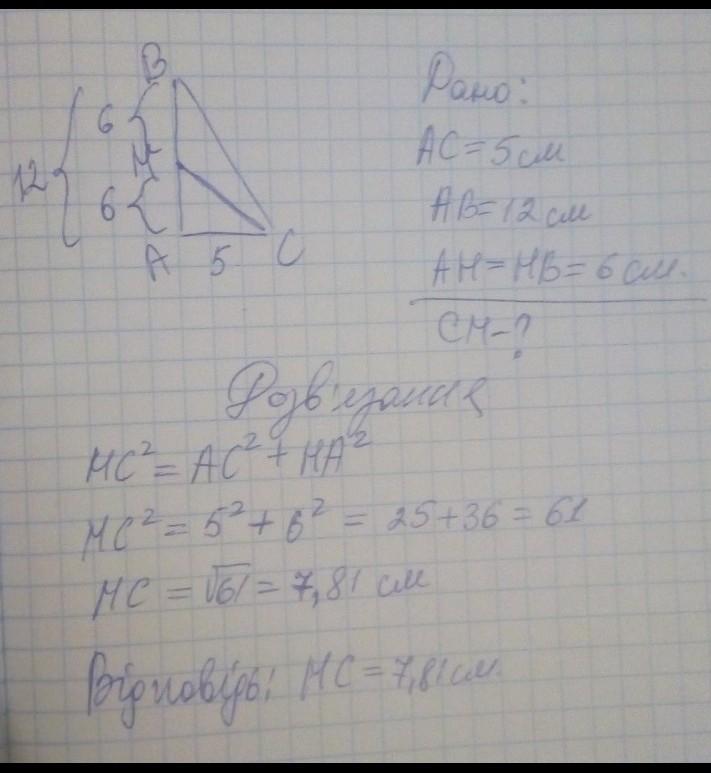 B
12
6
H
6
A 5 C
Дано:
AC = 5 см
AB = 12 см
AH = HB = 6 см.
CH - ?
Розв'язання
HC² = AC² + HA²
HC² = 5² + 6² = 25 + 36 = 61
HC = √61 = 7,81 см
Відповідь: HC = 7,81 см.